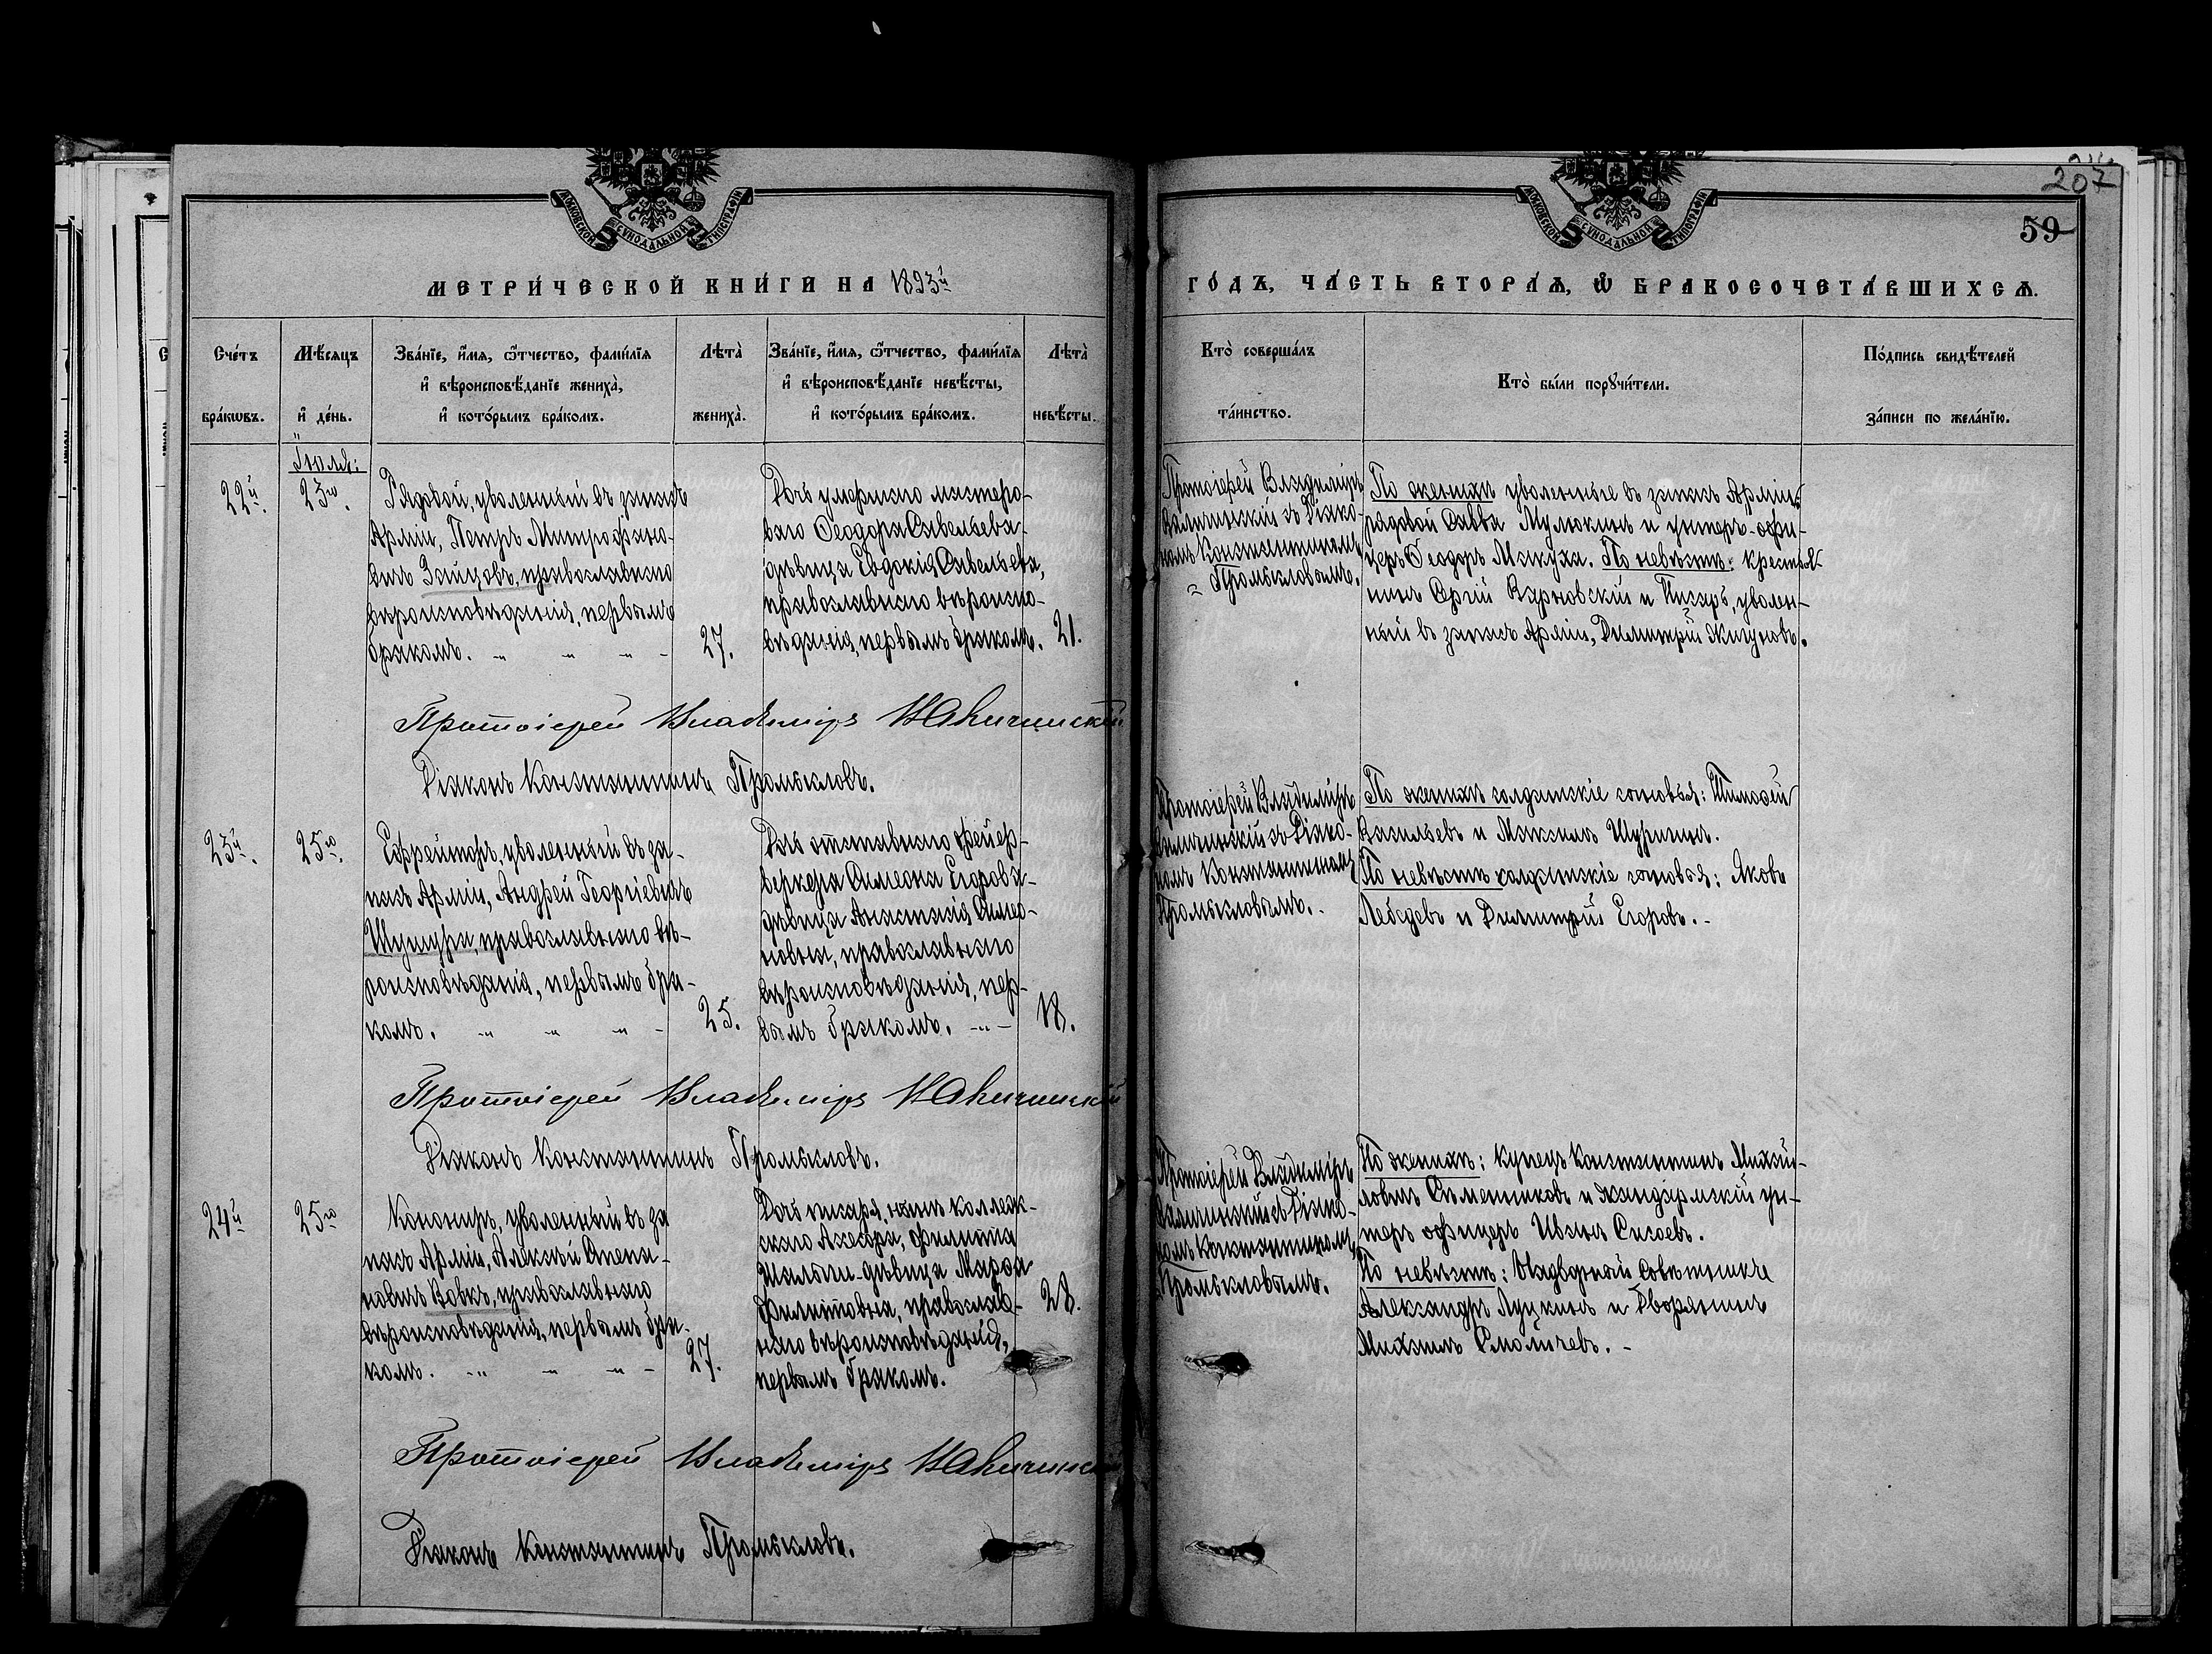 207
59
МОСКОВСКОЙ СѴНОДАЛЬНОЙ ТИПОГРАФІИ
МОСКОВСКОЙ СѴНОДАЛЬНОЙ ТИПОГРАФІИ
МЕТРИ́ЧЕСКОЙ КНИ́ГИ НА 1893й
ГО́ДЪ, ЧА́СТЬ ВТОРА́Ѧ, Ѽ БРАКОСОЧЕТА́ВШИХСѦ.
Сче́тъ
бра́кѡвъ.
Мѣ́сяцъ
и҆ де́нь.
Зва́нїе, и҆́мѧ, ѻ҆́тчество, фами́лїѧ
и҆ вѣроисповѣ́данїе жениха̀,
и҆ кото́рымъ бра́комъ.
Лѣта̀
жениха̀.
Зва́нїе, и҆́мѧ, ѻ҆́тчество, фами́лїѧ
и҆ вѣроисповѣ́данїе невѣ́сты,
и҆ кото́рымъ бра́комъ.
Лѣта̀
невѣ́сты.
Кто̀ соверша́лъ
та́инство.
Кто̀ бы́ли порꙋчи́тели.
По́дпись свидѣ́телей
за́писи по жела́нїю.
Іюля:
22й.
23го.
Рядовой, уволенный въ запасъ
Арміи, Петръ Митрофано-
вичъ Зайцовъ, православнаго
вѣроисповѣданія, первымъ
бракомъ.
27.
Дочь умершаго мастеро-
ваго Ѳеодора Савельева
дѣвица Евдокія Савельева,
православнаго вѣроиспо-
вѣданія, первымъ бракомъ.
21.
Протоіерей Владиміръ
съ Діяко-
номъ Константиномъ
Промысловымъ.
По женихѣ уволенные въ запасъ Арміи:
рядовой Савва Мулюкинъ и унтеръ-офи-
церъ Ѳеодоръ Макуха. По невѣстѣ: крестья-
нинъ Сергій Варновскій и Писарь, уволен-
ный въ запасъ Арміи, Димитрій
Протоіерей Владиміръ
Діяконъ Константинъ Промысловъ.
23й.
25го.
Ефрейторъ, уволенный въ за-
пасъ Арміи, Андрей Георгіевичъ
православнаго вѣ-
роисповѣданія, первымъ бра-
комъ.
25.
Дочь отставнаго фейер-
веркера Симеона Егорова
дѣвица Анастасія Симео-
новна, православнаго
вѣроисповѣданія, пер-
вымъ бракомъ.
18.
Протоіерей Владиміръ
съ Діяко-
номъ Константиномъ
Промысловымъ.
По женихѣ солдатскіе сыновья: Тимоѳей
Васильевъ и Максимъ Шуригинъ.
По невѣстѣ солдатскіе сыновья: Яковъ
Лебедевъ и Димитрій Егоровъ.
Протоіерей Владиміръ
Діяконъ Константинъ Промысловъ.
24й
25го
Канониръ, уволенный въ за
пасъ Арміи, Алексѣй
новичъ Вовкъ, православнаго
вѣроисповѣданія, первымъ бра-
комъ.
27.
Дочь писаря, нынѣ коллеж-
скаго Ассесора, Филиппа
дѣвица Марѳа
Филипповна, православ-
наго вѣроисповѣданія,
первымъ бракомъ.
28.
Протоіерей Владиміръ
съ Діяко-
номъ Константиномъ
Промысловымъ.
По женихѣ: купецъ Константинъ Михай-
ловичъ Сѣменниковъ и жандармскій ун-
теръ офицеръ Иванъ Сизоевъ.
По невѣстѣ: Надворный Совѣтникъ
Александръ Луцкинъ и Дворянинъ
Михаилъ
Протоіерей Владиміръ
Діяконъ Константинъ Промысловъ.